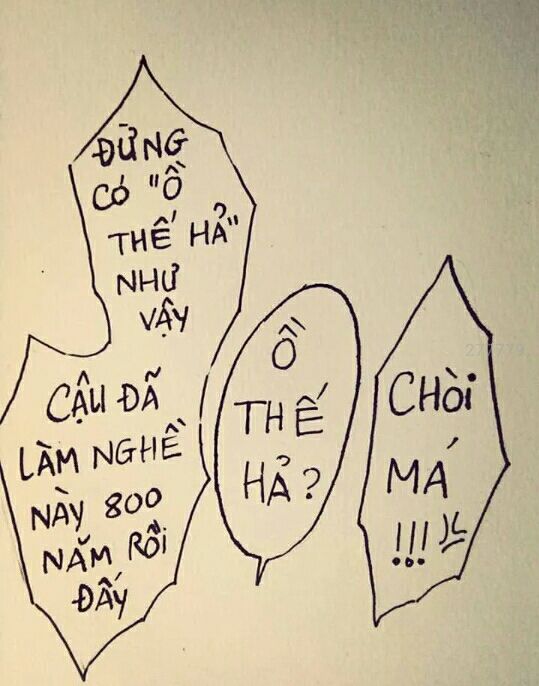 ĐỪNG
CÓ "Ồ
THẾ HẢ"
NHƯ
VẬY
CẬU ĐÃ
LÀM NGHỀ
NÀY 800
NĂM RỒI
ĐẤY
Ồ
THẾ
HẢ?
CHÒI
MÁ
!!!